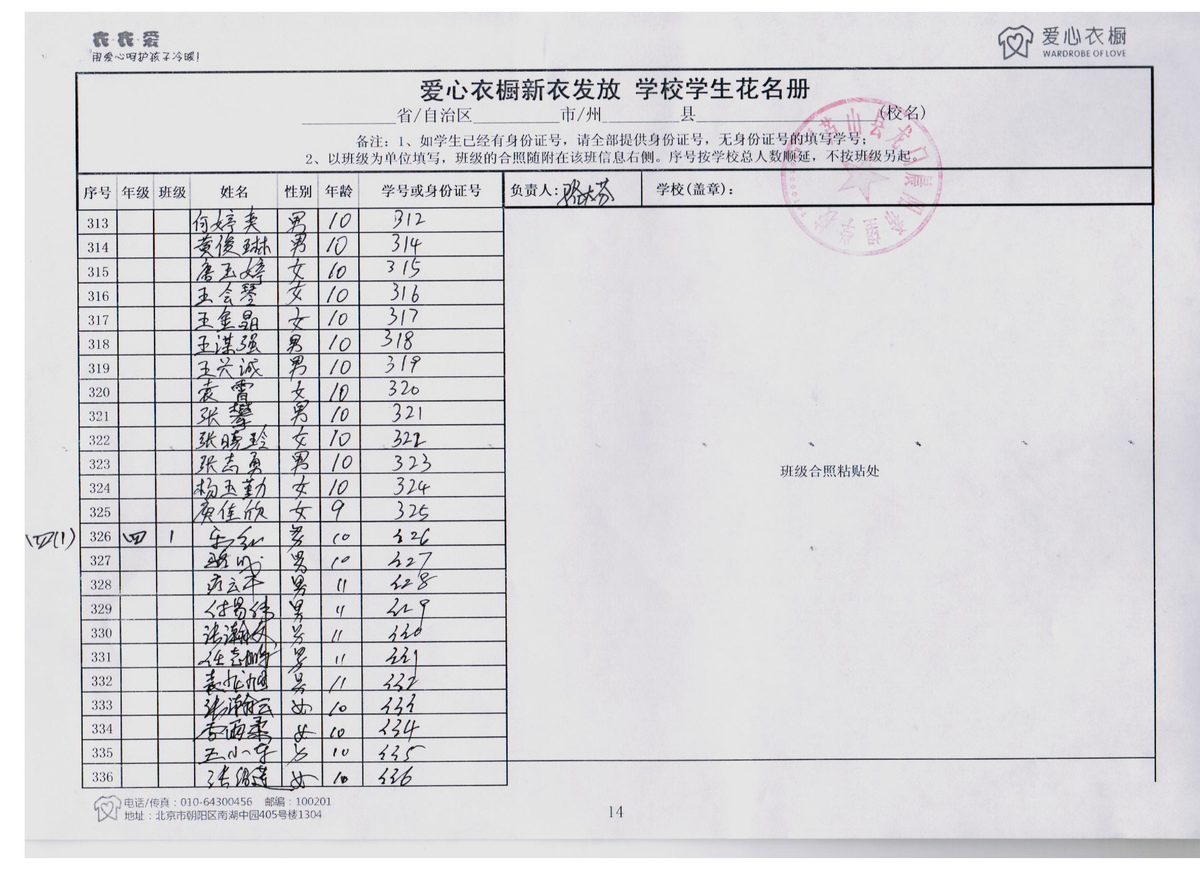 衣衣爱
用爱心呵护孩子冷暖!
爱心衣橱
WARDROBE OF LOVE
爱心衣橱新衣发放 学校学生花名册
省/自治区 市/州 县 (校名)
备注: 1、如学生已经有身份证号, 请全部提供身份证号, 无身份证号的填写学号;
2、以班级为单位填写, 班级的合照随附在该班信息右侧。序号按学校总人数顺延, 不按班级另起。
序号 年级 班级 姓名 性别 年龄 学号或身份证号 负责人: 学校(盖章):
313 何婷美 男 10 312
314 黄俊琳 男 10 314
315 唐玉婷 女 10 315
316 王会琴 女 10 316
317 王金晶 女 10 317
318 王谋强 男 10 318
319 王兴诚 男 10 319
320 袁雷 女 10 320
321 张攀 男 10 321
322 张晓玲 女 10 322
323 张志勇 男 10 323
324 杨玉勤 女 10 324
325 庾佳欣 女 9 325
四(1) 326 四 1 男 10 326
327 男 10 327
328 男 11 328
329 付易伟 男 11 329
330 张瀚文 男 11 330
331 任志鹏 男 11 331
332 袁龙旭 男 11 332
333 张瀚云 女 10 333
334 李雨柔 女 10 334
335 王小华 女 10 335
336 张绍莲 女 10 336
班级合照粘贴处
电话/传真: 010-64300456 邮编: 100201
地址: 北京市朝阳区南湖中园405号楼1304
14